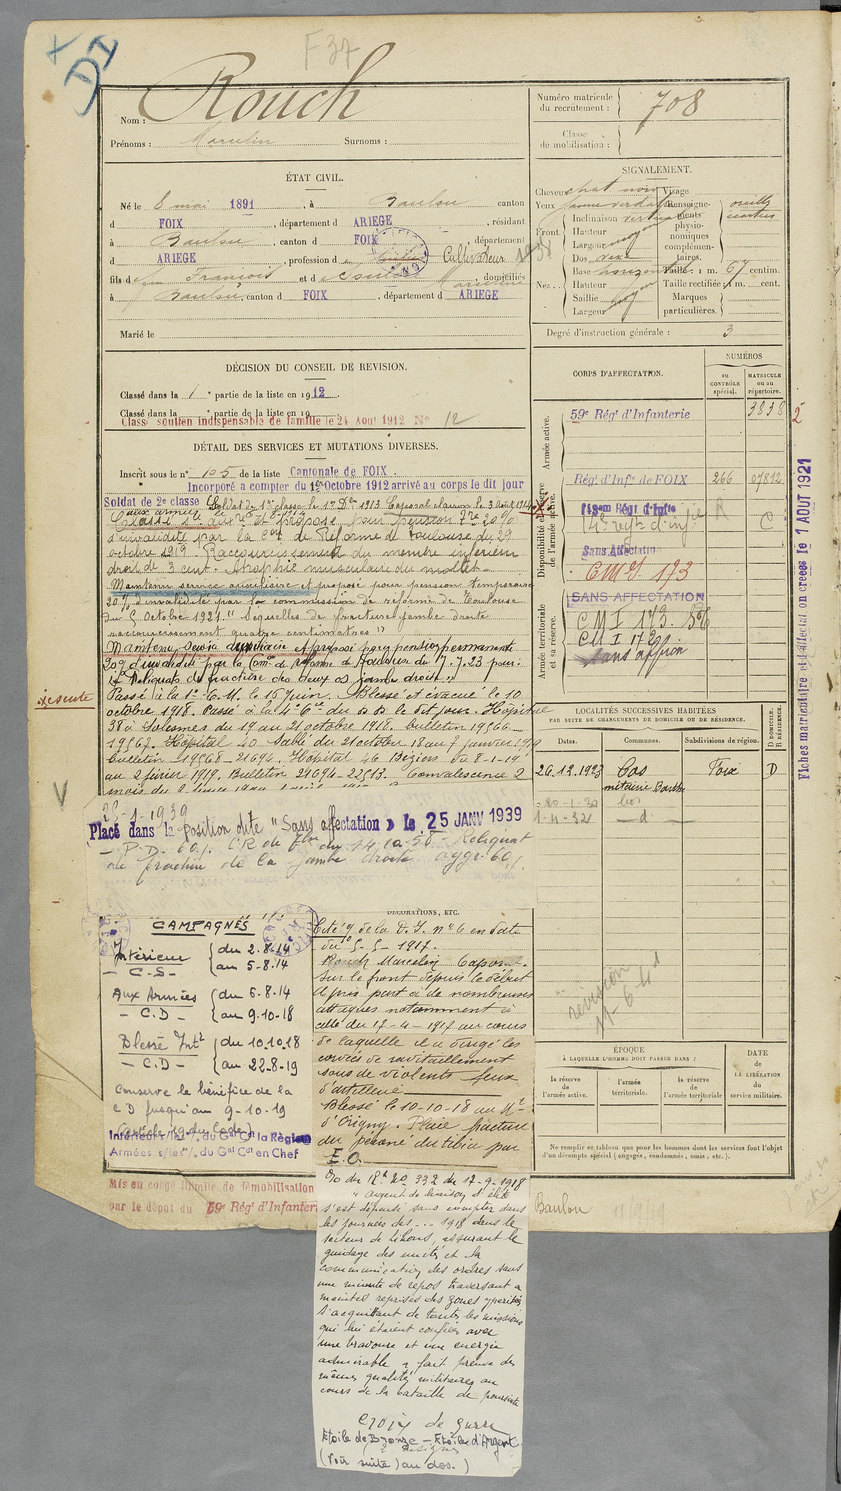 F 37
DI
Nom : Rouch
Prénoms : Marcelin Surnoms :
Numéro matricule
du recrutement : 708
Classe
de mobilisation :
ÉTAT CIVIL.
Né le 8 mai 1891, à Baulou canton
d FOIX, département d ARIEGE, résidant
à Baulou, canton d FOIX département
d ARIEGE, profession de Cultivateur
fils d François et d domiciliés
à Baulou, canton d FOIX, département d ARIEGE
Marié le
SIGNALEMENT.
Cheveux chat. noir Visage
Yeux Renseigne-
ments
physio-
nomiques
complémen-
taires.
Front. Inclinaison verticale
Hauteur
Largeur moyen
Nez... Dos
Base
Hauteur
Saillie
Largeur
Taille : 1 m. 67 centim.
Taille rectifiée : 1 m. cent.
Marques
particulières.
Degré d'instruction générale : 3
DÉCISION DU CONSEIL DE REVISION.
Classé dans la 1e partie de la liste en 1912
Classé dans la e partie de la liste en 19
Classé soutien indispensable de famille le 24 Aout 1912 No 12
DÉTAIL DES SERVICES ET MUTATIONS DIVERSES.
Inscrit sous le no 105 de la liste Cantonale de FOIX.
Incorporé a compter du Octobre 1912 arrivé au corps le dit jour
Soldat de 2e classe Soldat de 1re classe le 1er Dbre 1913 Caporal clairon le 3 Août 1914
aux armées
Classé sce auxre et proposé pour pension 20%
d'invalidité par la Con de Réforme de Toulouse du 29
octobre 1919. Raccourcissement du membre inférieur
droit de 3 cent. Atrophie musculaire du mollet.
Maintenu service auxiliaire et proposé pour pension temporaire
20% d'invalidité par la commission de réforme de Toulouse
du 5 Octobre 1921. "Séquelles de fracture jambe droite
raccourcissement quatre centimètres"
Maintenu service auxiliaire et proposé pour pension permanente
20% d'invalidité par la Comon de réforme de Toulouse du 17.7.23 pour:
Reliquats de fracture des deux os jambe droite.
Passé à la 1e C.M. le 15 juin. Blessé et évacué le 10
octobre 1918. Passé à la 4e Cie du le dit jour. Hôpital
38 à Solesmes du 19 au 21 octobre 1918. Bulletin 19566 -
19567. Hôpital 40 Sablé du 21 octobre 18 au 7 janvier 1919
Bulletin 19568 - 21694. Hôpital 46 Béziers du 8-1-19
au 2 février 1919. Bulletin 21694 - 22513. Convalescence 2
25-1-1939
Placé dans la position dite "Sans affectation" le 25 JANV 1939
P.D. 60% CR de du 14.10.55 Reliquat
de fracture de la jambe droite aggr. 60%
CAMPAGNES
Intérieur du 2.8.14
- C.S - au 5-8-14
Aux Armées du 6-8-14
- C.D - au 9-10-18
Blessé Intr du 10.10.18
- C.D - au 22-8-19
Conserve le bénéfice de la
CD jusqu'au 9-10-19
(article du Code)
Intérieur s/les o/. du Gal Ct la Région
Armées s/les o/. du Gal Ct en Chef
Mis en congé illimité de démobilisation
par le dépot du 59e Régt d'Infanterie
DÉCORATIONS, ETC.
Cité à l'O de la D.I. no 6 en date
du 5-5-1917.
Rouch Marcelin Caporal
Sur le front depuis le début
a pris part à de nombreuses
attaques notamment à
celle du 17-4-1917 au cours
de laquelle il a dirigé les
corvées de ravitaillement
sous de violents feux
d'artillerie
Blessé le 10-10-18 au Mt
d'Origny. Plaie fracture
du péroné du tibia par
E.O.
O/o du Rt no 332 du 17-9-1918
"Agent de liaison d'élite
s'est dépensé sans compter dans
les journées des ... 1918 dans le
secteur de Lihons, assurant le
guidage des unités et la
communication des ordres sans
une minute de repos traversant à
maintes reprises des zones ypéritées
s'acquittant de toutes les missions
qui lui étaient confiées avec
une bravoure et une énergie
admirable a fait preuve des
mêmes qualités militaires au
cours de la bataille de poursuite
Croix de guerre
Etoile de Bronze - Etoile d'Argent
(Voir suite au dos.)
CORPS D'AFFECTATION.
NUMÉROS
au
CONTRÔLE
spécial.
MATRICULE
ou au
répertoire.
Armée active.
59e Régt d'Infanterie 3838
Disponibilité et réserve
de l'armée active.
Régt d'Infie de FOIX 266 07812
14e regt d'infie R C
Sans Affectation
C.M.I. 173
Armée territoriale
et sa réserve.
SANS AFFECTATION
CMI 173.
CM I 173
Sans affon
Fiches matriculaire et d'affectation créées le 1 AOUT 1921
LOCALITÉS SUCCESSIVES HABITÉES
PAR SUITE DE CHANGEMENTS DE DOMICILE OU DE RÉSIDENCE.
Dates. Communes. Subdivisions de région. D DOMICILE. R RÉSIDENCE.
26.12.1923 Cos Foix D
métairie
1-4-32 - d -
revision
ÉPOQUE
À LAQUELLE L'HOMME DOIT PASSER DANS :
la réserve
de l'armée active.
l'armée
territoriale.
la réserve
de l'armée territoriale
DATE
de
LA LIBÉRATION
du
service militaire.
Ne remplir ce tableau que pour les hommes dont les services font l'objet
d'un décompte spécial (engagés, condamnés, omis, etc.).
Baulou